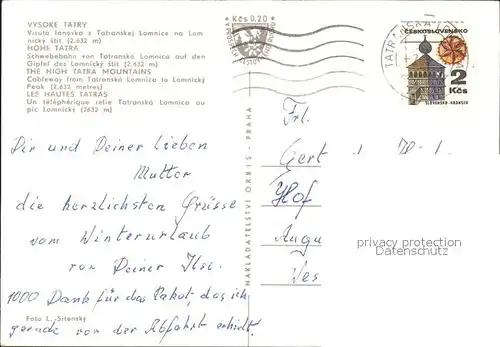 VYSOKÉ TATRY
Visutá lanovka z Tatranskej Lomnice na Lom
nický štít (2.632 m)
HOHE TATRA
Schwebebahn von Tatranská Lomnica auf den
Gipfel des Lomnický štít (2.632 m)
THE HIGH TATRA MOUNTAINS
Cableway from Tatranská Lomnica to Lomnický
Peak (2.632 metres)
LES HAUTES TATRAS
Un téléphérique relie Tatranská Lomnica au
pic Lomnický (2632 m)
Kčs 0,20
ČESKOSLOVENSKO
2
Kčs
SLOVENSKO-KRONSEK
TATRANSKÁ
NAKLADATELSTVÍ ORBIS - PRAHA
Dir und Deiner lieben
Mutter
die herzlichsten Grüsse
vom Winterurlaub
von Deiner Ilse.
1000 Dank für das Paket, das ich
gerade vor der Abfahrt erhielt!
Foto L. Sitenský
Frl.
Gert
Hof
Augu
Wes
privacy protection
Datenschutz